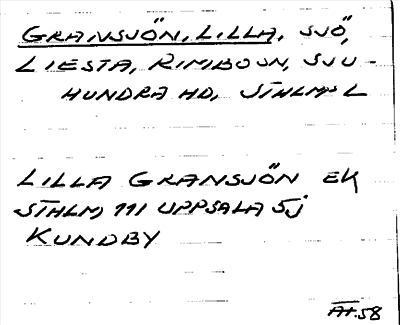 GRANSJÖN, LILLA, SJÖ,
LIESTA, RIMBO SN, SJU-
HUNDRA HD, STHLMS L
LILLA GRANSJÖN EK
STHLM 111 UPPSALA 5j
KUNDBY
AH.58